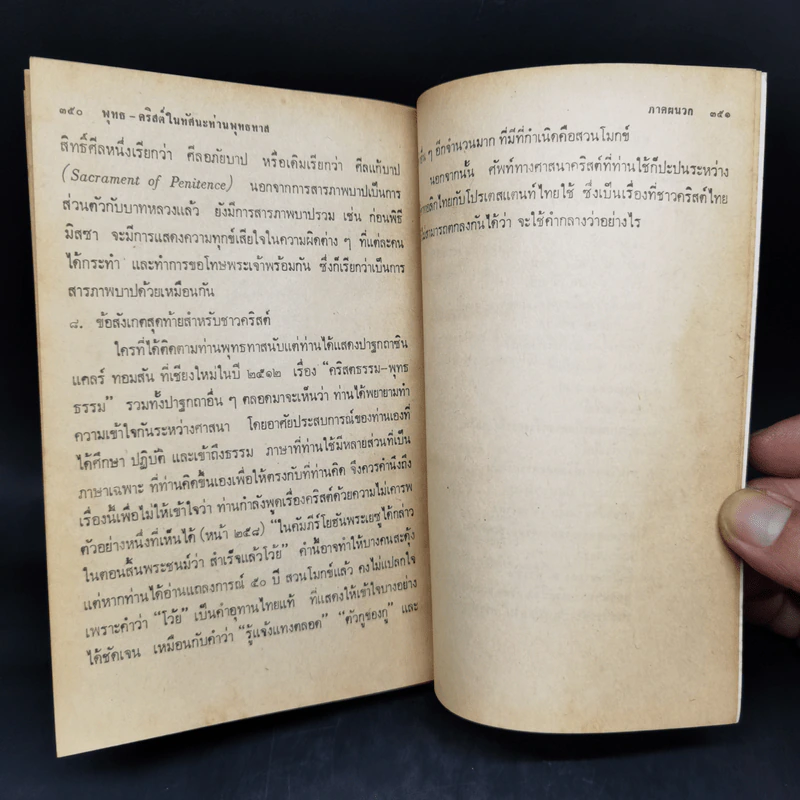 ๓๕๐ พุทธ – คริสต์ในทัศนะท่านพุทธทาส
สิทธิ์ศีลหนึ่งเรียกว่า ศีลอภัยบาป หรือเดิมเรียกว่า ศีลแก้บาป
(Sacrament of Penitence) นอกจากการสารภาพบาปเป็นการ
ส่วนตัวกับบาทหลวงแล้ว ยังมีการสารภาพบาปรวม เช่น ก่อนพิธี
มิสซา จะมีการแสดงความทุกข์เสียใจในความผิดต่าง ๆ ที่แต่ละคน
ได้กระทำ และทำการขอโทษพระเจ้าพร้อมกัน ซึ่งก็เรียกว่าเป็นการ
สารภาพบาปด้วยเหมือนกัน
๘. ข้อสังเกตสุดท้ายสำหรับชาวคริสต์
ใครที่ได้ติดตามท่านพุทธทาสนับแต่ท่านได้แสดงปาฐกถาซิน
แคลร์ ทอมสัน ที่เชียงใหม่ในปี ๒๕๑๒ เรื่อง “คริสตธรรม–พุทธ
ธรรม” รวมทั้งปาฐกถาอื่น ๆ ตลอดมาจะเห็นว่า ท่านได้พยายามทำ
ความเข้าใจกันระหว่างศาสนา โดยอาศัยประสบการณ์ของท่านเองที่
ได้ศึกษา ปฏิบัติ และเข้าถึงธรรม ภาษาที่ท่านใช้มีหลายส่วนที่เป็น
ภาษาเฉพาะ ที่ท่านคิดขึ้นเองเพื่อให้ตรงกับที่ท่านคิด จึงควรคำนึงถึง
เรื่องนี้เพื่อไม่ให้เข้าใจว่า ท่านกำลังพูดเรื่องคริสต์ด้วยความไม่เคารพ
ตัวอย่างหนึ่งที่เห็นได้ (หน้า ๒๕๘) “ในคัมภีร์โยฮันพระเยซูได้กล่าว
ในตอนสิ้นพระชนม์ว่า สำเร็จแล้วโว้ย” คำนี้อาจทำให้บางคนสะดุ้ง
แต่หากท่านได้อ่านแถลงการณ์ ๕๐ ปี สวนโมกข์แล้ว คงไม่แปลกใจ
เพราะคำว่า “โว้ย” เป็นคำอุทานไทยแท้ ที่แสดงให้เข้าใจบางอย่าง
ได้ชัดเจน เหมือนกับคำว่า “รู้แจ้งแทงตลอด” “ตัวกูของกู” และ
ภาคผนวก ๓๕๑
อื่น ๆ อีกจำนวนมาก ที่มีที่กำเนิดคือสวนโมกข์
นอกจากนั้น ศัพท์ทางศาสนาคริสต์ที่ท่านใช้ก็ปะปนระหว่าง
คาทอลิกไทยกับโปรเตสแตนท์ไทยใช้ ซึ่งเป็นเรื่องที่ชาวคริสต์ไทย
ไม่สามารถตกลงกันได้ว่า จะใช้คำกลางว่าอย่างไร